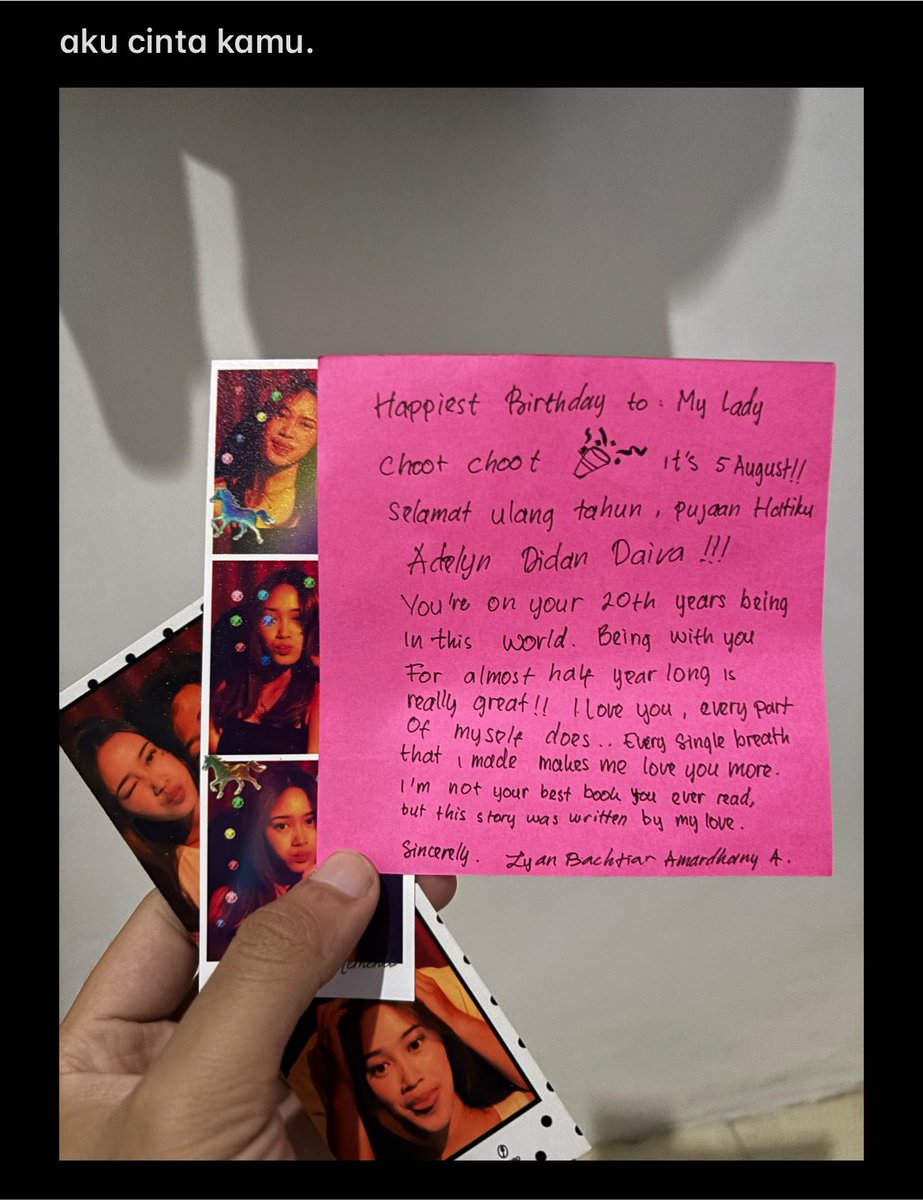 aku cinta kamu.
Happiest Birthday to : My Lady
Choot choot it's 5 August!!
Selamat ulang tahun, pujaan Hatiku
Adelyn Didan Daiva !!!
You're on your 20th years being
in this world. Being with you
For almost half year long is
really great!! I love you, every part
Of myself does.. Every single breath
that i made makes me love you more.
I'm not your best book you ever read,
but this story was written by my love.
Sincerely. Lyan Bachtiar Amardhany A.